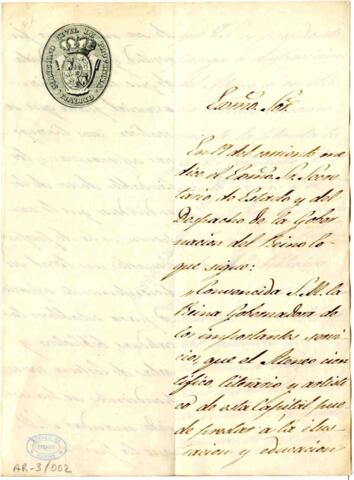 Exmo. Sor.
En 17 del corriente me
dice el Exmo. Sr. Secre-
tario de Estado y del
Despacho de la Gober-
nacion del Reino lo
que sigue:
"Convencida S.M. la
Reina Gobernadora de
los importantes servi-
cios, que el Ateneo cien-
tifico literario y artisti-
co de esta Capital pue-
de prestar a la ilus-
tracion y educacion
AR-3/002